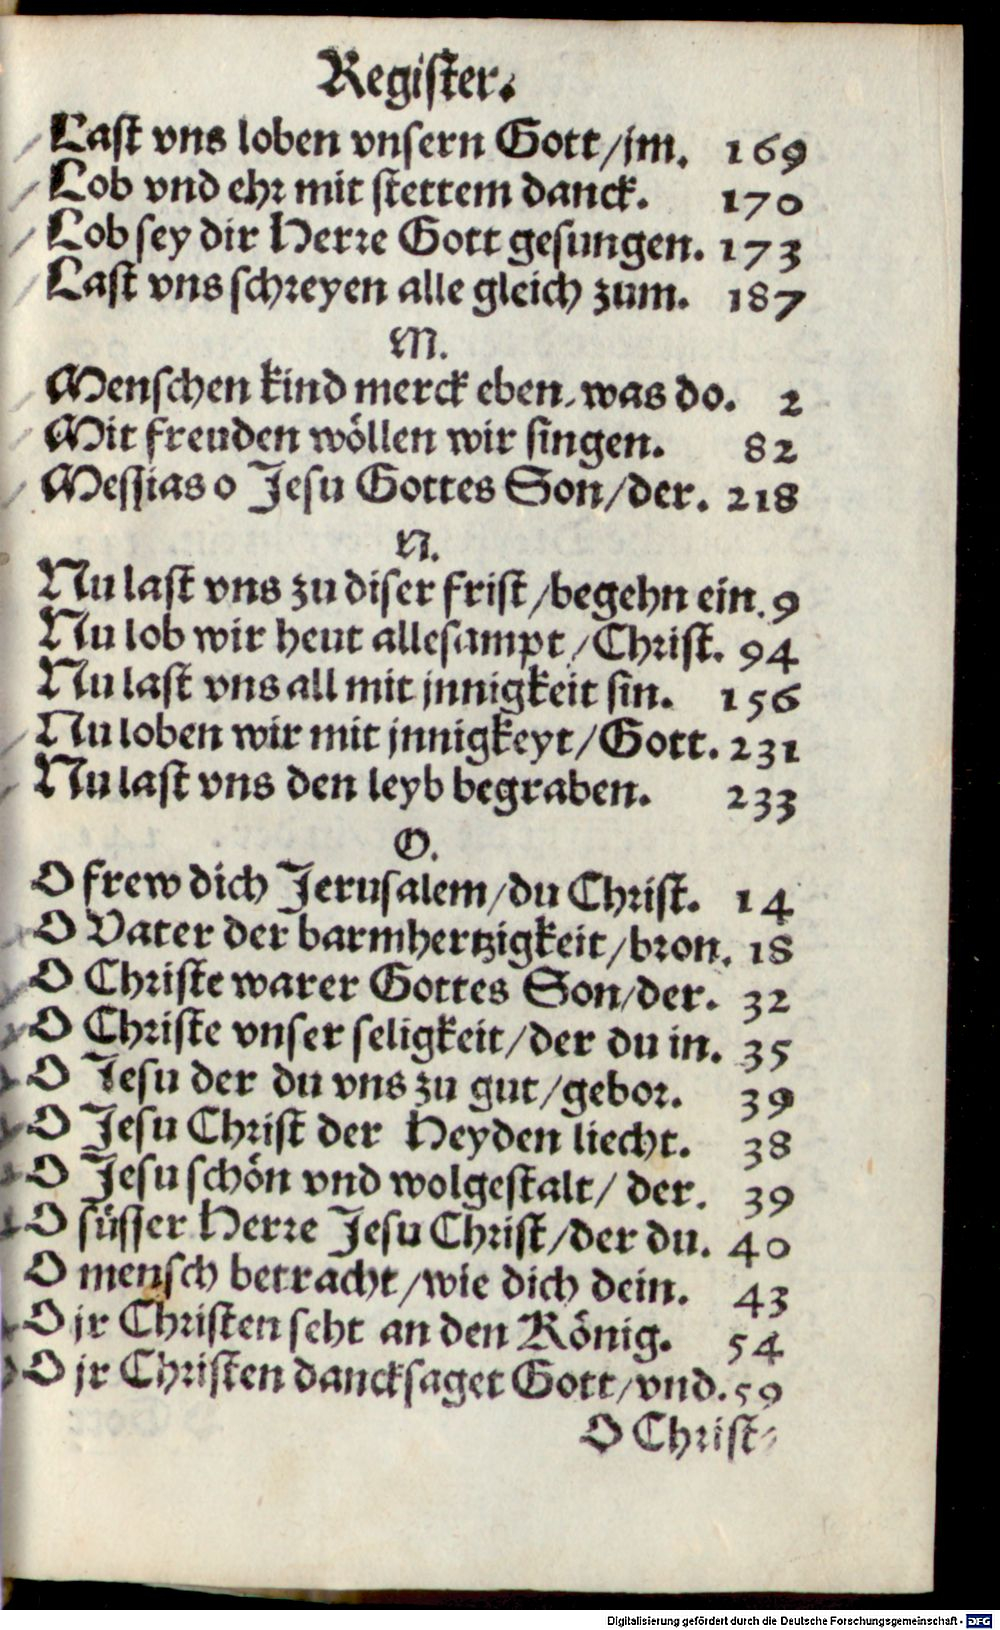 Register.
Last vns loben vnsern Gott/jm. 169
Lob vnd ehr mit stettem danck. 170
Lob sey dir Herre Gott gesungen. 173
Last vns schreyen alle gleich zum. 187
M.
Menschen kind merck eben, was do. 2
Mit freuden wöllen wir singen. 82
Messias o Jesu Gottes Son/der. 218
N.
Nu last vns zu diser frist/begehn ein. 9
Nu lob wir heut allesampt/Christ. 94
Nu last vns all mit jnnigkeit sin. 156
Nu loben wir mit jnnigkeyt/Gott. 231
Nu last vns den leyb begraben. 233
O.
O frew dich Jerusalem/du Christ. 14
O Vater der barmhertzigkeit/bron. 18
O Christe warer Gottes Son/der. 32
O Christe vnser seligkeit/der du in. 35
O Jesu der du vns zu gut/gebor. 39
O Jesu Christ der Heyden liecht. 38
O Jesu schön vnd wolgestalt/ der. 39
O süsser Herre Jesu Christ/der du. 40
O mensch betracht/wie dich dein. 43
O jr Christen seht an den König. 54
O jr Christen dancksaget Gott/vnd. 59
O Christ-
Digitalisierung gefördert durch die Deutsche Forschungsgemeinschaft - DFG